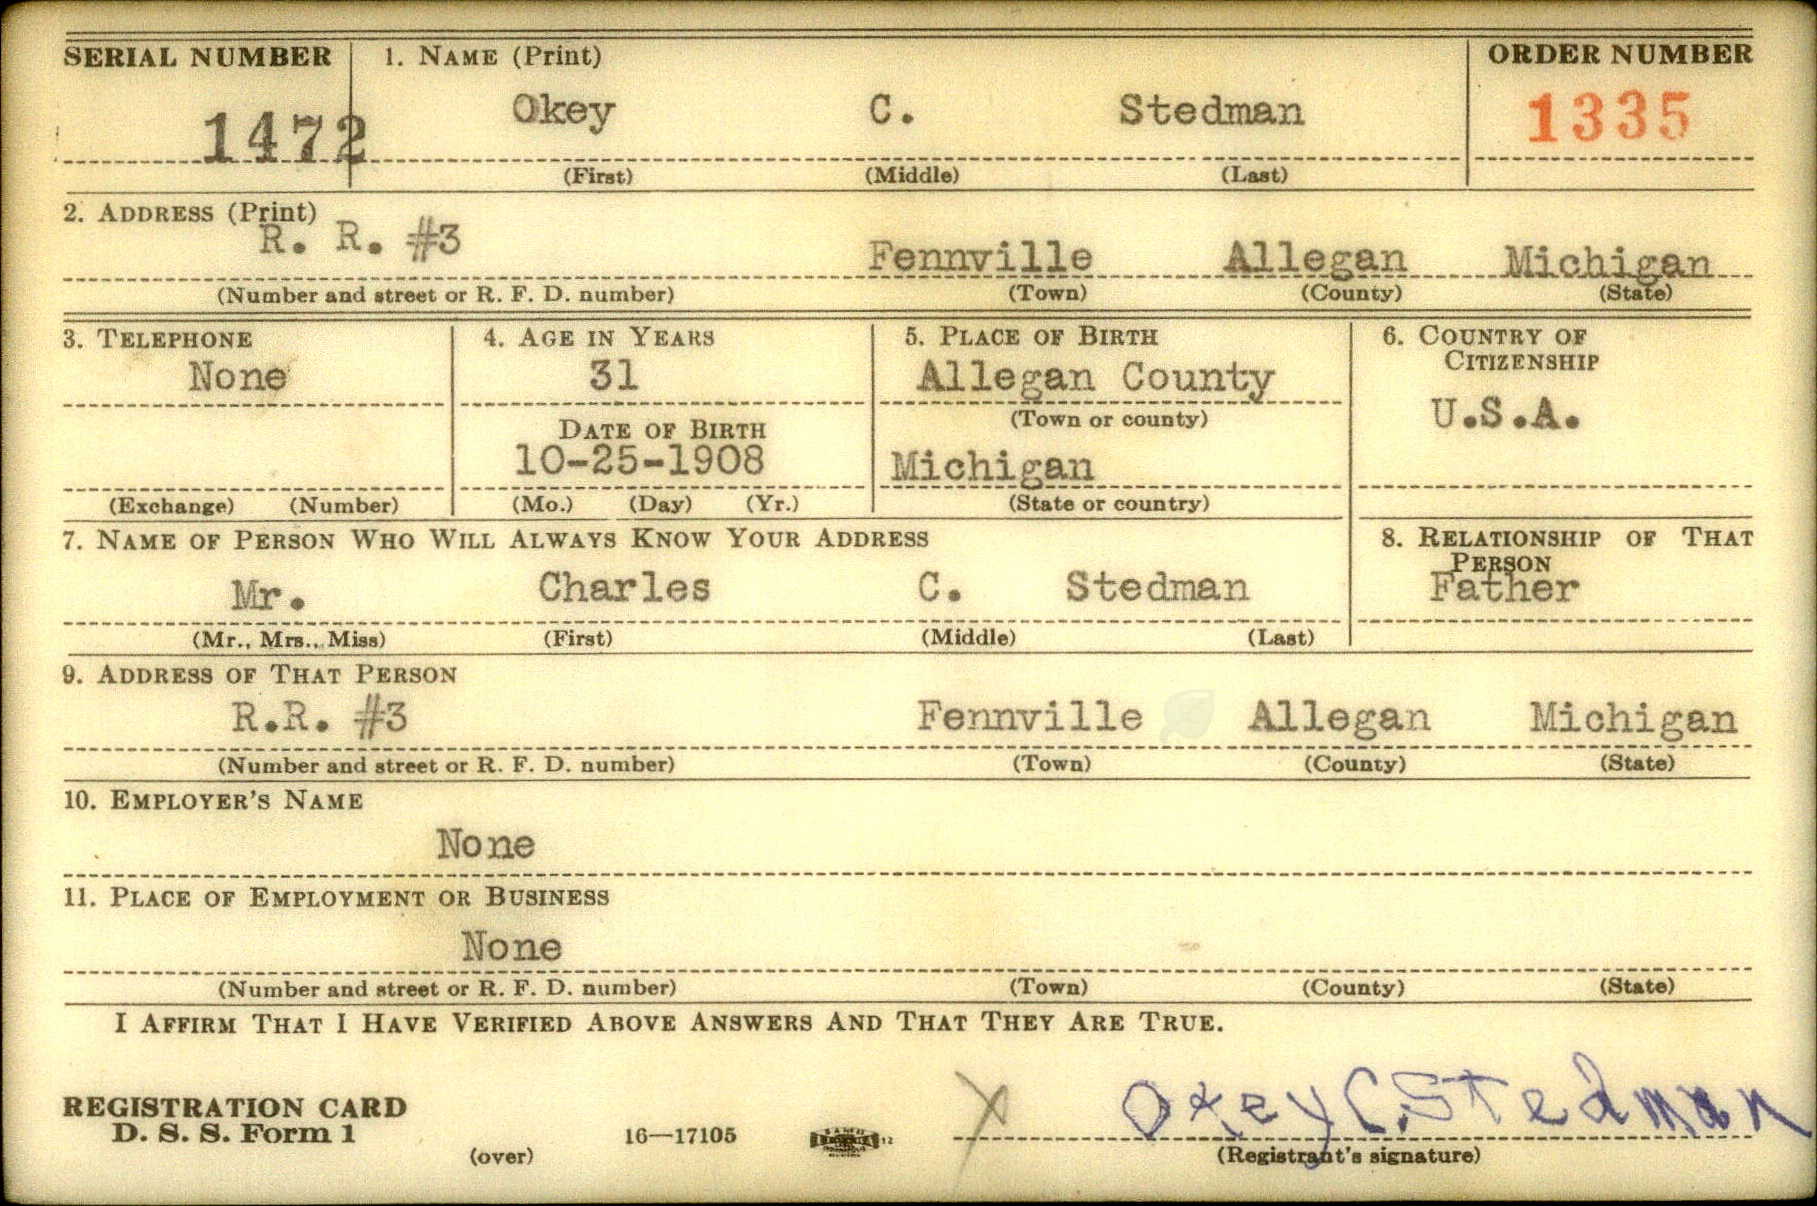 SERIAL NUMBER 1. NAME (Print) ORDER NUMBER
1472 Okey C. Stedman 1335
(First) (Middle) (Last)
2. ADDRESS (Print)
R. R. #3 Fennville Allegan Michigan
(Number and street or R. F. D. number) (Town) (County) (State)
3. TELEPHONE 4. AGE IN YEARS 5. PLACE OF BIRTH 6. COUNTRY OF CITIZENSHIP
None 31 Allegan County
(Town or county) U.S.A.
DATE OF BIRTH
10-25-1908 Michigan
(Exchange) (Number) (Mo.) (Day) (Yr.) (State or country)
7. NAME OF PERSON WHO WILL ALWAYS KNOW YOUR ADDRESS 8. RELATIONSHIP OF THAT PERSON
Mr. Charles C. Stedman Father
(Mr., Mrs., Miss) (First) (Middle) (Last)
9. ADDRESS OF THAT PERSON
R.R. #3 Fennville Allegan Michigan
(Number and street or R. F. D. number) (Town) (County) (State)
10. EMPLOYER'S NAME
None
11. PLACE OF EMPLOYMENT OR BUSINESS
None
(Number and street or R. F. D. number) (Town) (County) (State)
I AFFIRM THAT I HAVE VERIFIED ABOVE ANSWERS AND THAT THEY ARE TRUE.
REGISTRATION CARD X Okey C. Stedman
D. S. S. Form 1 16—17105 12
(over) (Registrant's signature)